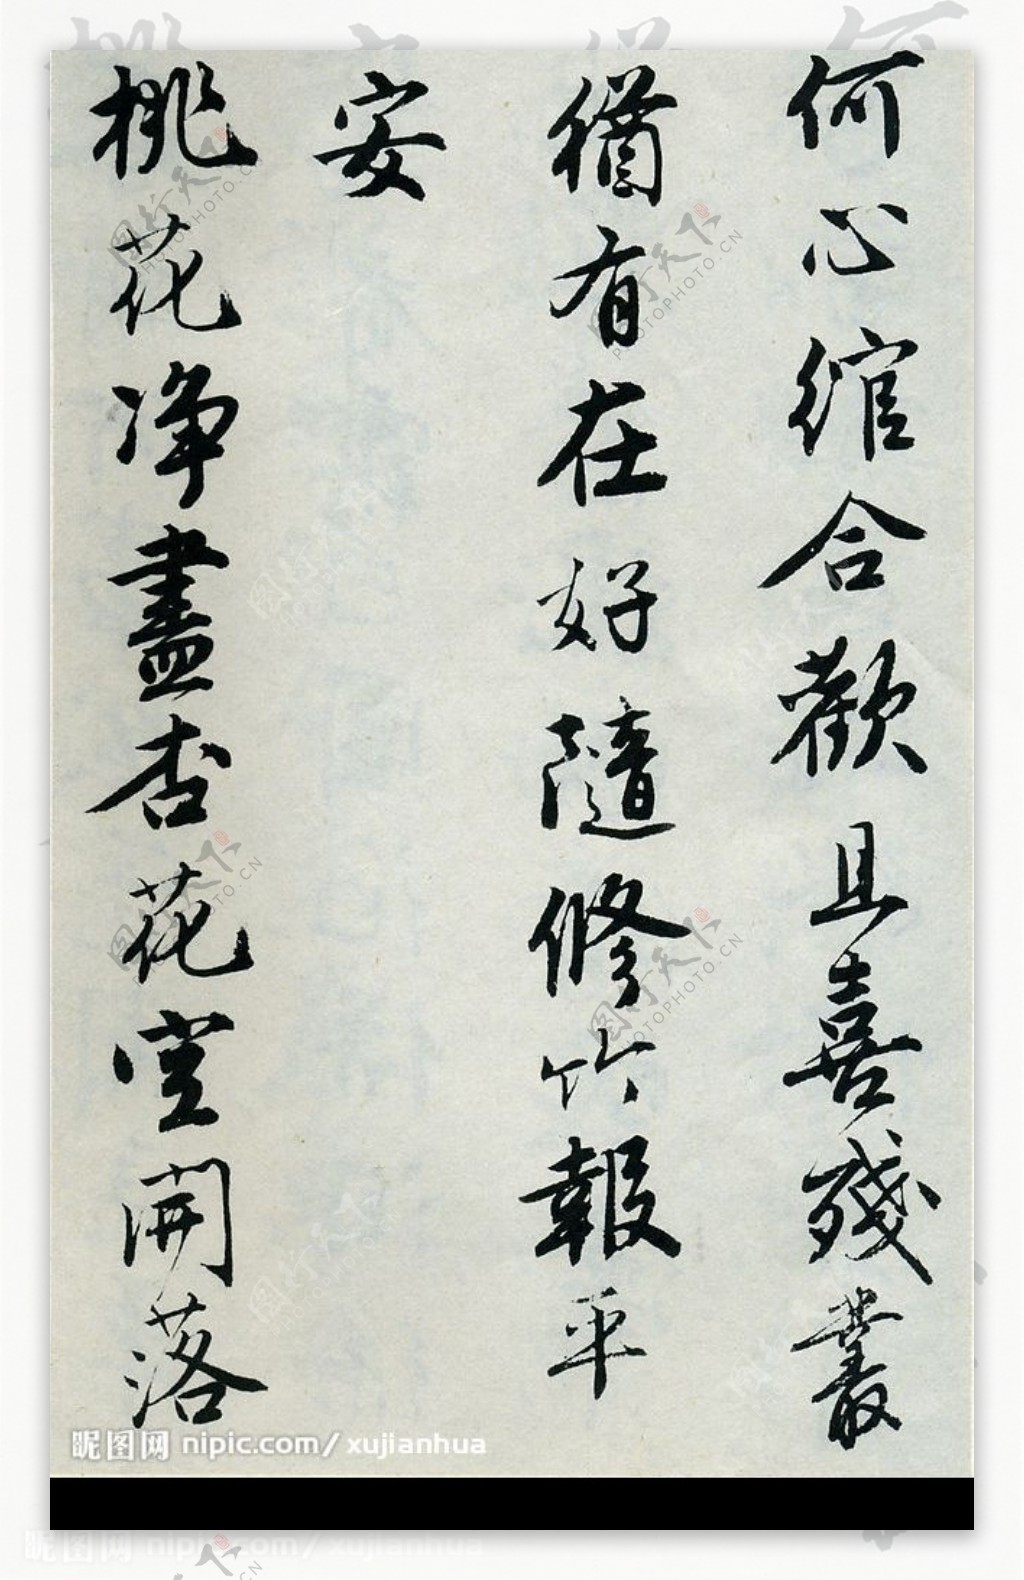 何心綰合歡且喜殘叢
猶有在好隨修竹報平
安
桃花净盡杏花空開落
昵图网 nipic.com/xujianhua